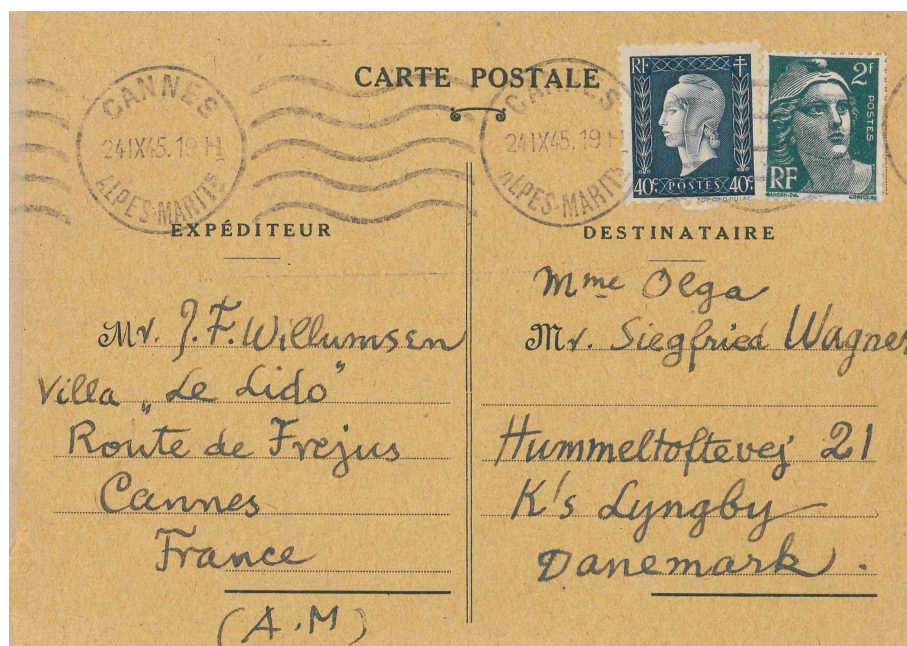 CARTE POSTALE
CANNES
24 IX 45. 19 H
ALPES-MARITES
CANNES
24 IX 45. 19 H
ALPES-MARIT
RF
40c POSTES 40c
2f
POSTES
RF
EXPÉDITEUR
Mr. J. F. Willumsen
Villa „Le Lido"
Route de Frejus
Cannes
France
(A.M)
DESTINATAIRE
Mme Olga
Mr. Siegfried Wagner
Hummeltoftevej 21
K's Lyngby
Danemark.